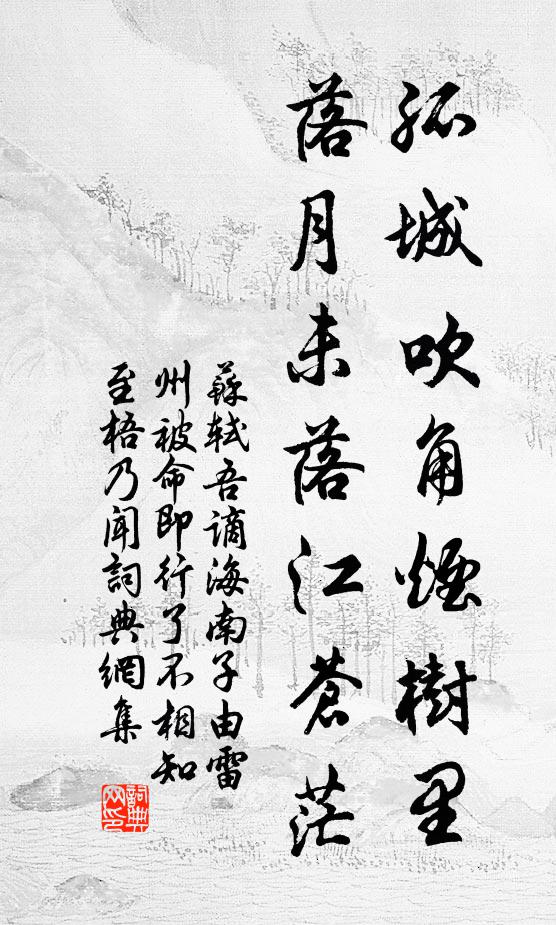 孤城吹角煙樹里
落月未落江蒼茫
蘇軾吾謫海南子由雷
州被命即行了不相知
至梧乃聞詞典網集
詞典
网印